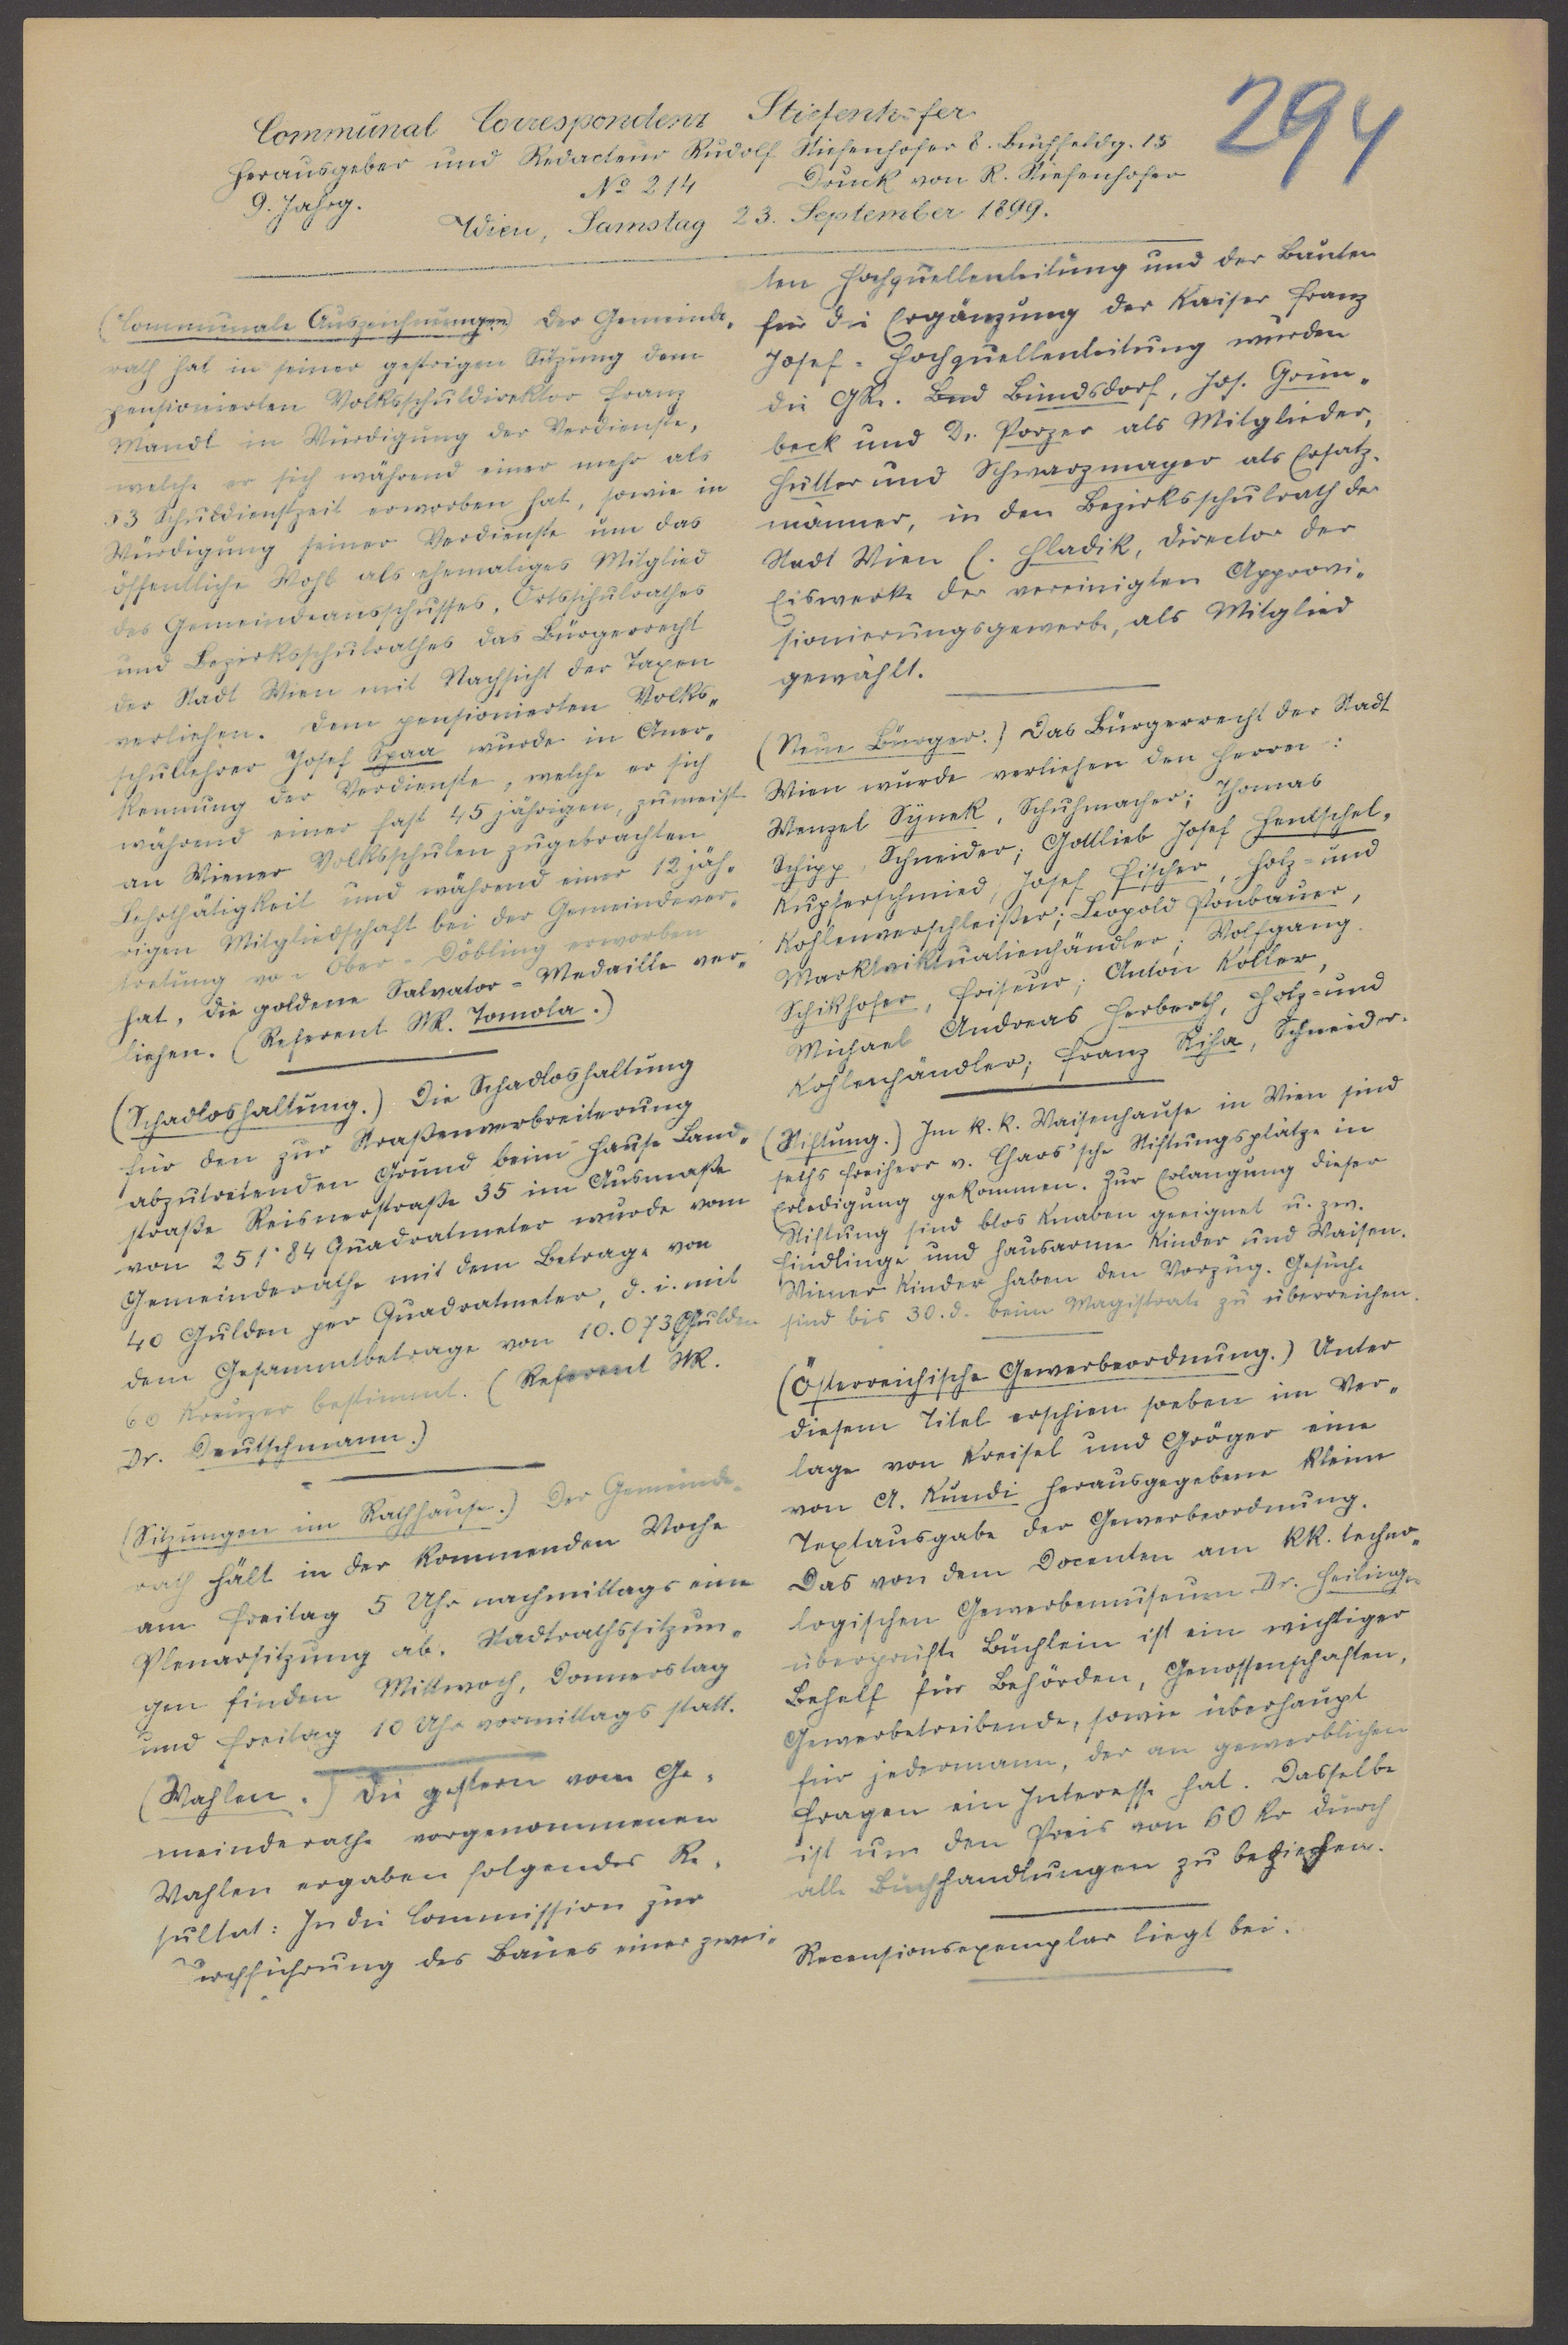 294
Communal Correspondenz Stiefenhofer
Herausgeber und Redacteur Rudolf Stiefenhofer 8. Buchfeldg. 15
9. Jahrg. No 214 Druck von R. Stiefenhofer
Wien, Samstag 23. September 1899.
(Communale Auszeichnungen) Der Gemeinde-
rath hat in seiner gestrigen Sitzung dem
pensionierten Volksschuldirektor Franz
Mandl in Würdigung der Verdienste,
welche er sich während einer mehr als
53 Schuldienstzeit erworben hat, sowie in
Würdigung seiner Verdienste um das
öffentliche Wohl als ehemaliges Mitglied
des Gemeindeausschusses, Ortsschulrathes
und Bezirksschulrathes das Bürgerrecht
der Stadt Wien mit Nachsicht der Taxen
verliehen. Dem pensionierten Volks-
schullehrer Josef Spaa wurde in Aner-
kennung der Verdienste, welche er sich
während einer fast 45 jährigen, zumeist
an Wiener Volksschulen zugebrachten
Lehrthätigkeit und während einer 12 jäh-
rigen Mitgliedschaft bei der Gemeindever-
tretung von Ober-Döbling erworben
hat, die goldene Salvator-Medaille ver-
liehen. (Referent StR. Tomola.)
(Schadloshaltung.) Die Schadloshaltung
für den zur Straßenverbreiterung
abzutretenden Grund beim Hause Land-
straße Reisnerstraße 35 im Ausmaße
von 251·84 Quadratmeter wurde vom
Gemeinderathe mit dem Betrage von
40 Gulden per Quadratmeter, d. i. mit
dem Gesammtbetrage von 10.073 Gulden
60 Kreuzer bestimmt. (Referent StR.
Dr. Deutschmann.)
(Sitzungen im Rathhause.) Der Gemeinde-
rath hält in der kommenden Woche
am Freitag 5 Uhr nachmittags eine
Plenarsitzung ab. Stadtrathssitzun-
gen finden Mittwoch, Donnerstag
und Freitag 10 Uhr vormittags statt.
(Wahlen.) Die gestern vom Ge-
meinderathe vorgenommenen
Wahlen ergaben folgendes Re-
sultat: In die Commission zur
Durchführung des Baues einer zwei-
ten Hochquellenleitung und der Bauten
für die Ergänzung der Kaiser Franz
Josef-Hochquellenleitung wurden
die GRe. Bndsdorf, Jos. Grün-
beck und Dr. Porzer als Mitglieder,
Hütter und Schwarzmayer als Ersatz-
männer, in den Bezirksschulrath der
Stadt Wien C. Hladik, Director der
Eiswerke der vereinigten Approvi-
sionierungsgewerbe, als Mitglied
gewählt.
(Neue Bürger.) Das Bürgerrecht der Stadt
Wien wurde verliehen den Herren:
Wenzel Synek, Schuhmacher; Thomas
Schipp, Schneider; Gottlieb Josef Hentschel,
Kupferschmied, Josef Fischer, Holz- und
Kohlenverschleißer; Leopold Ponbauer,
Marktviktualienhändler; Wolfgang
Schikhofer, Friseur; Anton Koller,
Michael Andreas Herberth, Holz- und
Kohlenhändler; Franz Riha, Schneider.
(Stiftung.) Im k. k. Waisenhause in Wien sind
sechs Freiherr v. Chaos'sche Stiftungsplätze in
Erledigung gekommen. Zur Erlangung dieser
Stiftung sind blos Knaben geeignet u. zw.
Findlinge und hausarme Kinder und Waisen.
Wiener Kinder haben den Vorzug. Gesuche
sind bis 30. d. beim Magistrate zu überreichen.
(Österreichische Gewerbeordnung.) Unter
diesem Titel erschien soeben im Ver-
lage von Kreisel und Gröger eine
von A. Kundi herausgegebene kleine
Textausgabe der Gewerbeordnung.
Das von dem Docenten am k.k. techno-
logischen Gewerbemuseum Dr. Heilinger
überprüfte Büchlein ist ein wichtiger
Behelf für Behörden, Genossenschaften,
Gewerbetreibende, sowie überhaupt
für jedermann, der an gewerblichen
Fragen ein Interesse hat. Dasselbe
ist um den Preis von 60 Kr durch
alle Buchhandlungen zu beziehen.
Recensionsexemplar liegt bei.